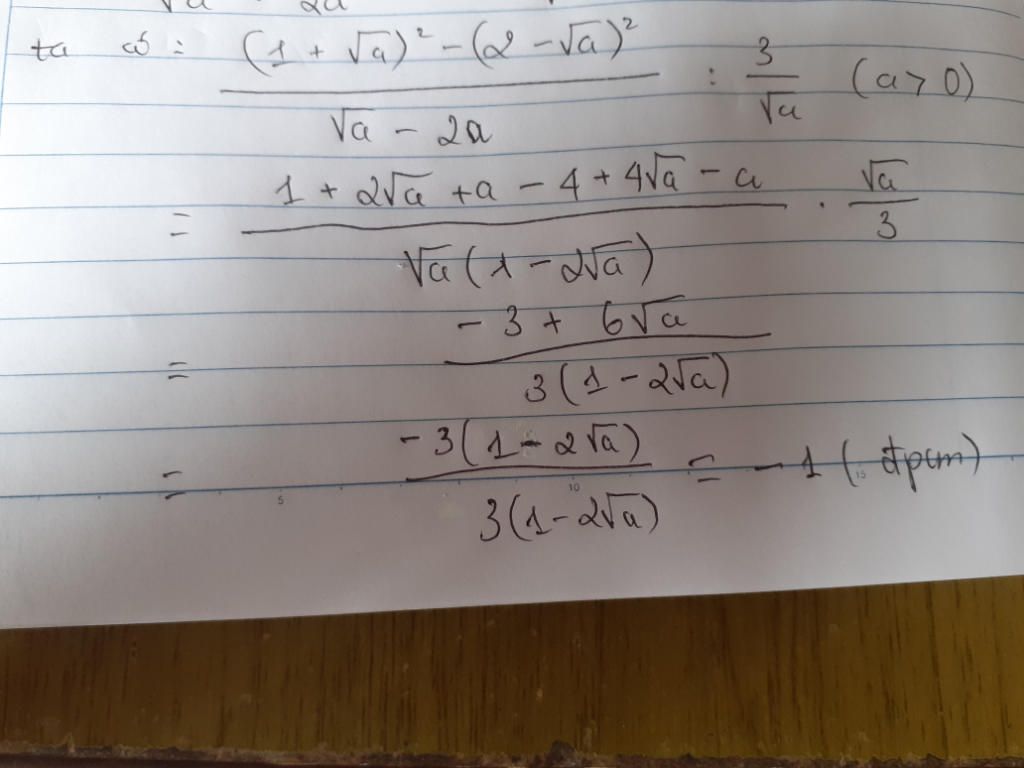 √a 2a √
ta có : ((1 + √a)² - (2 - √a)²) / (√a - 2a) : 3/√a (a > 0)
= (1 + 2√a + a - 4 + 4√a - a) / (√a(1 - 2√a)) . √a/3
= (-3 + 6√a) / (3(1 - 2√a))
= (-3(1 - 2√a)) / (3(1 - 2√a)) = -1 (đpcm)
5 10 15